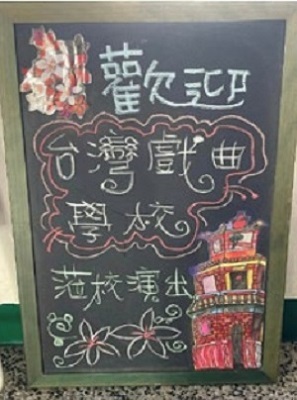 歡迎
台灣戲曲
學校
蒞校演出